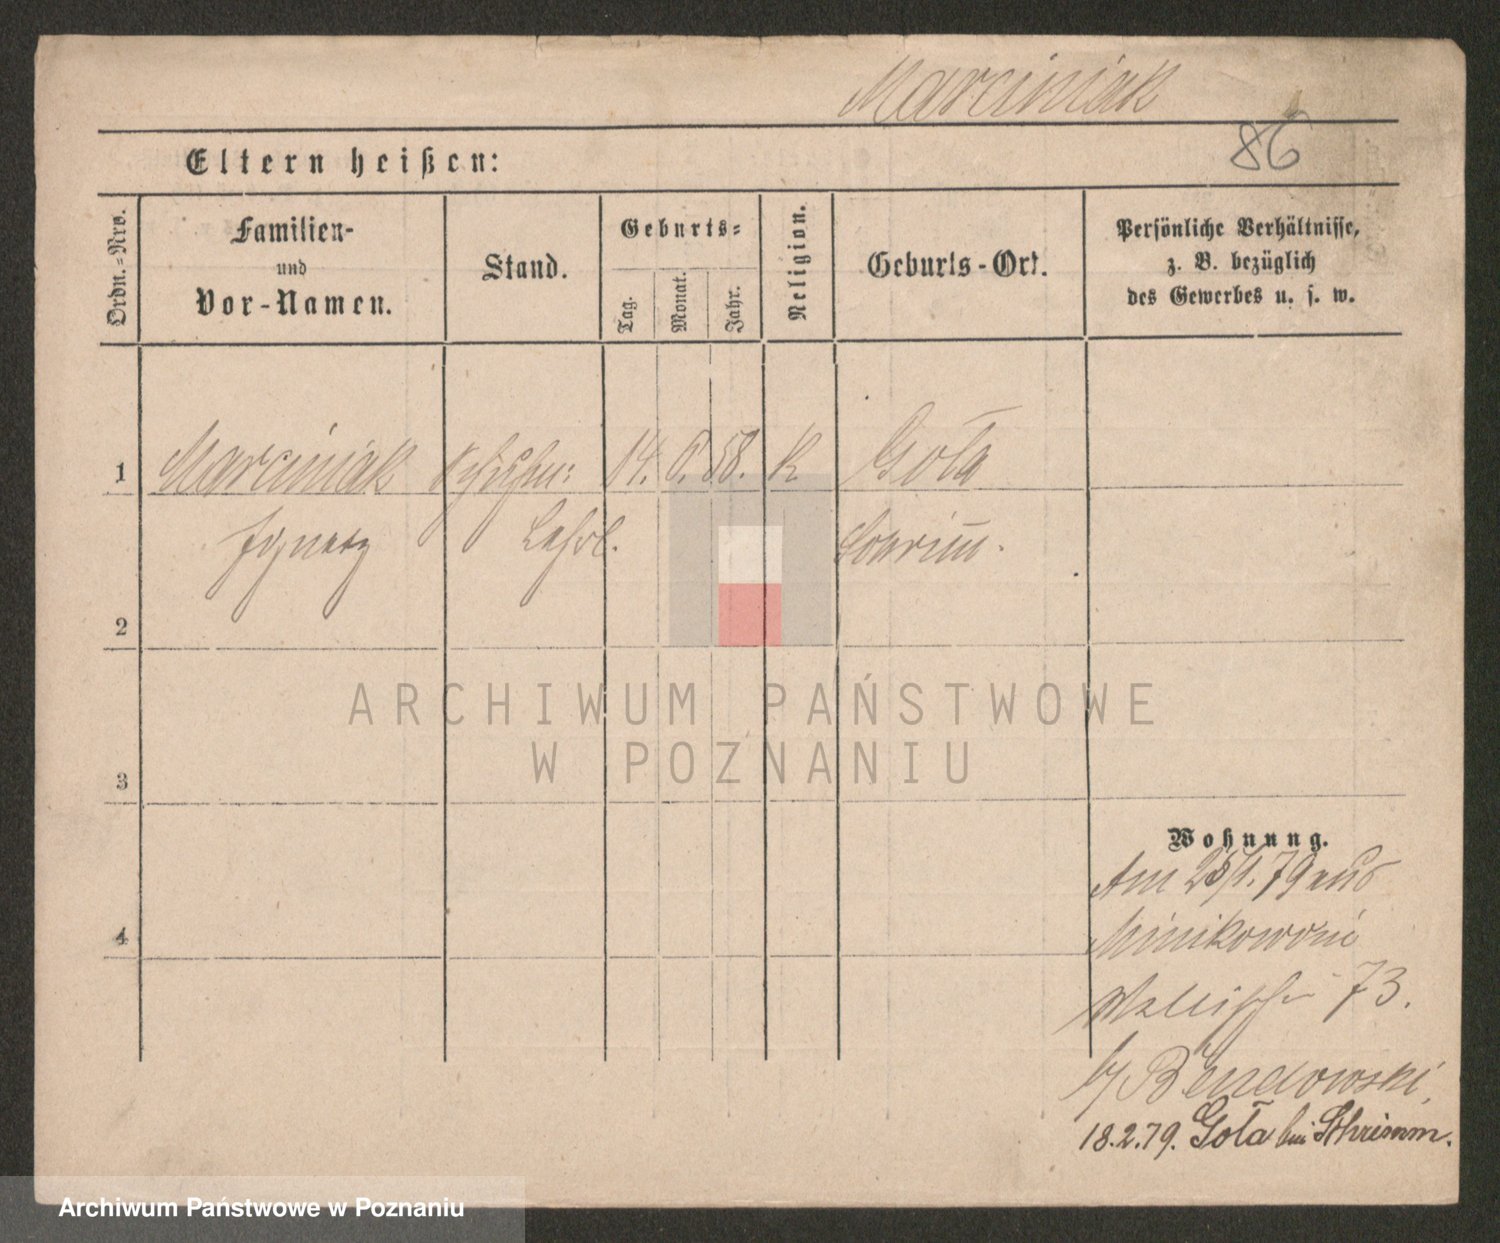 Marciniak
86
Eltern heißen:
Ordn.-Nro.
Familien- und Vor-Namen.
Stand.
Geburts-
Tag.
Monat.
Jahr.
Religion.
Geburts-Ort.
Persönliche Verhältnisse,
z. B. bezüglich
des Gewerbes u. s. w.
1 Marciniak 14. 6. 58. K Gola
Ignatz Lehrl. Schrim̅.
2
ARCHIWUM PAŃSTWOWE
W POZNANIU
3
Wohnung.
Am 25/1. 79 aus
4
Minikowo in
Wallischei 73.
b/ Bendowski,
18.2.79. Gola bei Schrimm.
Archiwum Państwowe w Poznaniu